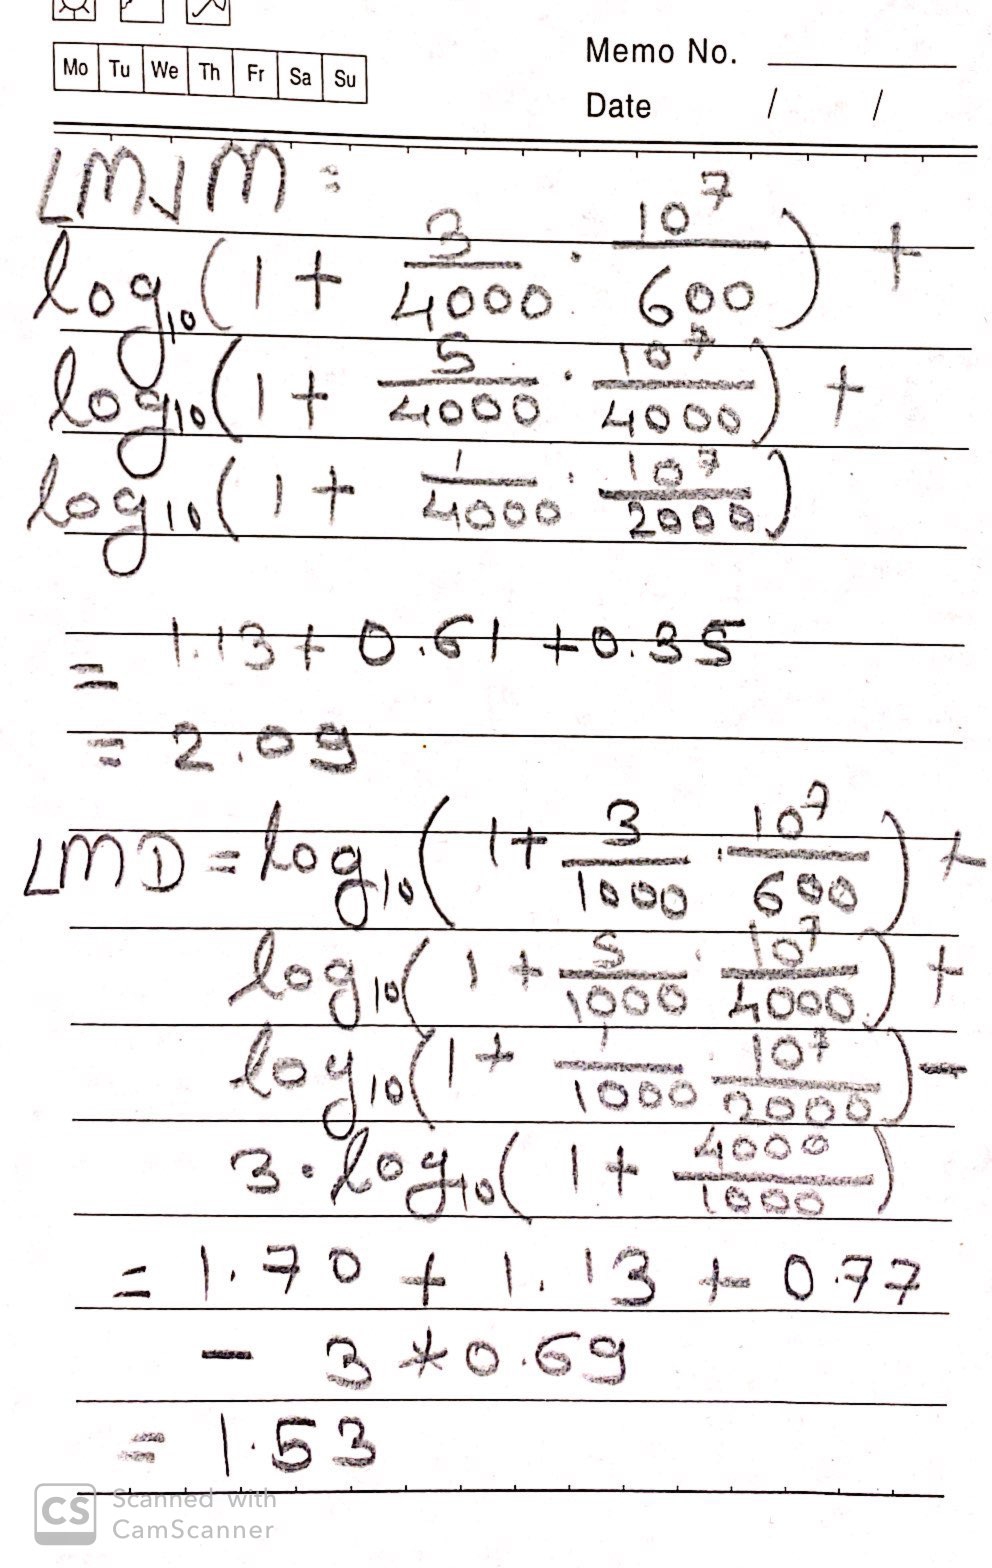 Mo Tu We Th Fr Sa Su
Memo No.
Date / /
LMJM:
log₁₀(1 + 3/4000 · 10⁷/600) +
log₁₀(1 + 5/4000 · 10⁷/4000) +
log₁₀(1 + 1/4000 · 10⁷/2000)
= 1.13 + 0.61 + 0.35
= 2.09
LMD = log₁₀(1 + 3/1000 · 10⁷/600) +
log₁₀(1 + 5/1000 · 10⁷/4000) +
log₁₀(1 + 1/1000 · 10⁷/2000) -
3 · log₁₀(1 + 4000/1000)
= 1.70 + 1.13 + 0.77
- 3 * 0.69
= 1.53
CS Scanned with
CamScanner